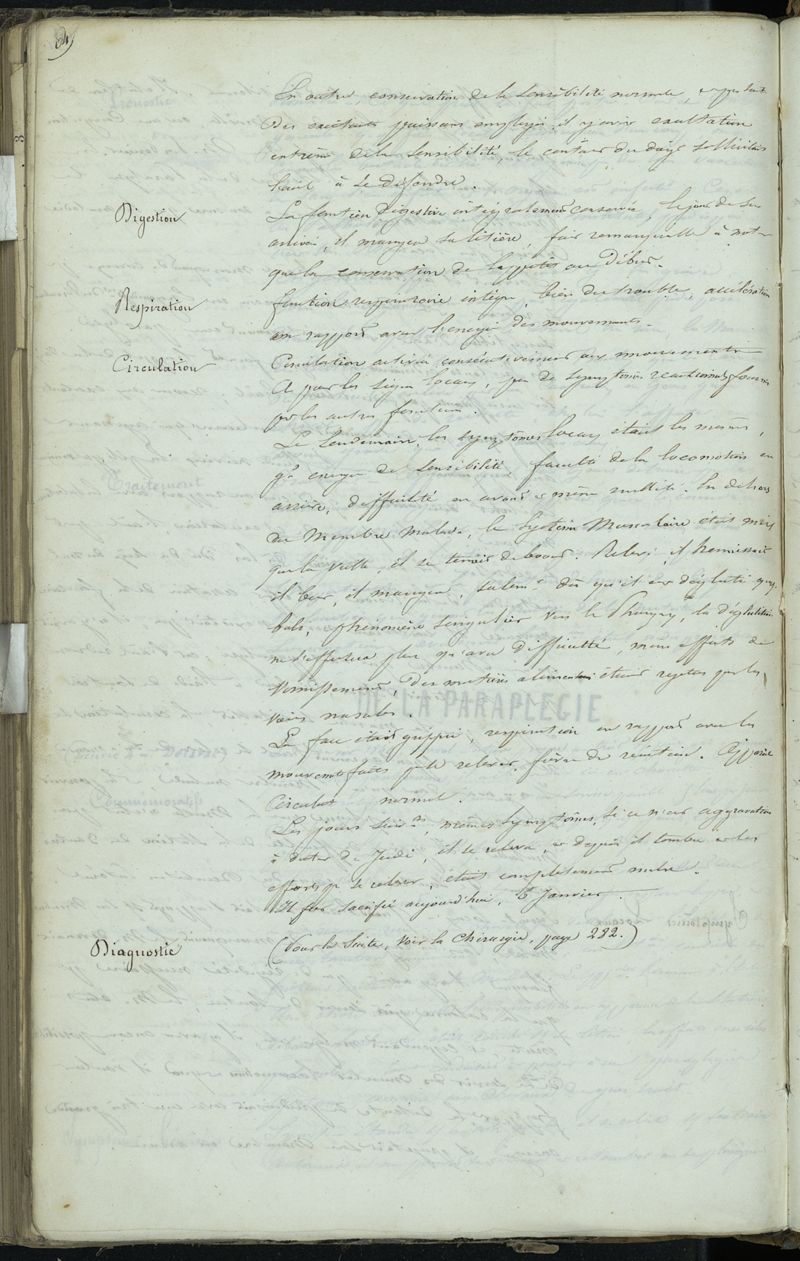 En outre, conservation de la sensibilité normale,
des excitants puissans employés, il y avait exaltation
extrême de la sensibilité, le contact du doigt sollicitait
à se défendre.
Digestion
La fonction Digestive intégralement conservée, le jour de son
arrivée, il mangea sa litière, fait remarquable à noter
que la conservation de l'appétit au Début.
Respiration
fonction respiratoire intègre, bien du trouble, accélération
en rapport avec l'énergie des mouvements.
Circulation
Circulation activée consécutivement aux mouvements
A part les signes locaux, peu de symptômes réactionnels fournis
par les autres fonctions.
Le lendemain, les symptômes locaux étaient les mêmes,
énergie de sensibilité, faculté de la locomotion en
arrière, difficulté en avant et même nullité. En dehors
du Membre malade, le Système Musculaire était mieux
que la veille, il se tenait debout. Relevé, il hennissait
il but, il mangea, dès qu'il eut dégluti quelques
bols, phénomène singulier vers le Pharynx, la déglutition
ne s'effectua plus qu'avec difficulté, mêmes efforts de
vomissement, des matières alimentaires étaient rejetées par les
voies nasales.
La face était grippée, respiration en rapport avec les
mouvements faits pour se relever, fièvre de réaction. Appareil
Circulat normal.
Les jours suivts, mêmes symptômes, si ce n'est aggravation
à dater de Jeudi, il se releva, et depuis il tomba et les
efforts pr se relever, étaient complètement nuls.
Il fut sacrifié aujourd'hui, Janvier.
Diagnostic
(Pour la Suite, voir la Chirurgie, page 282.)
DE LA PARAPLEGIE